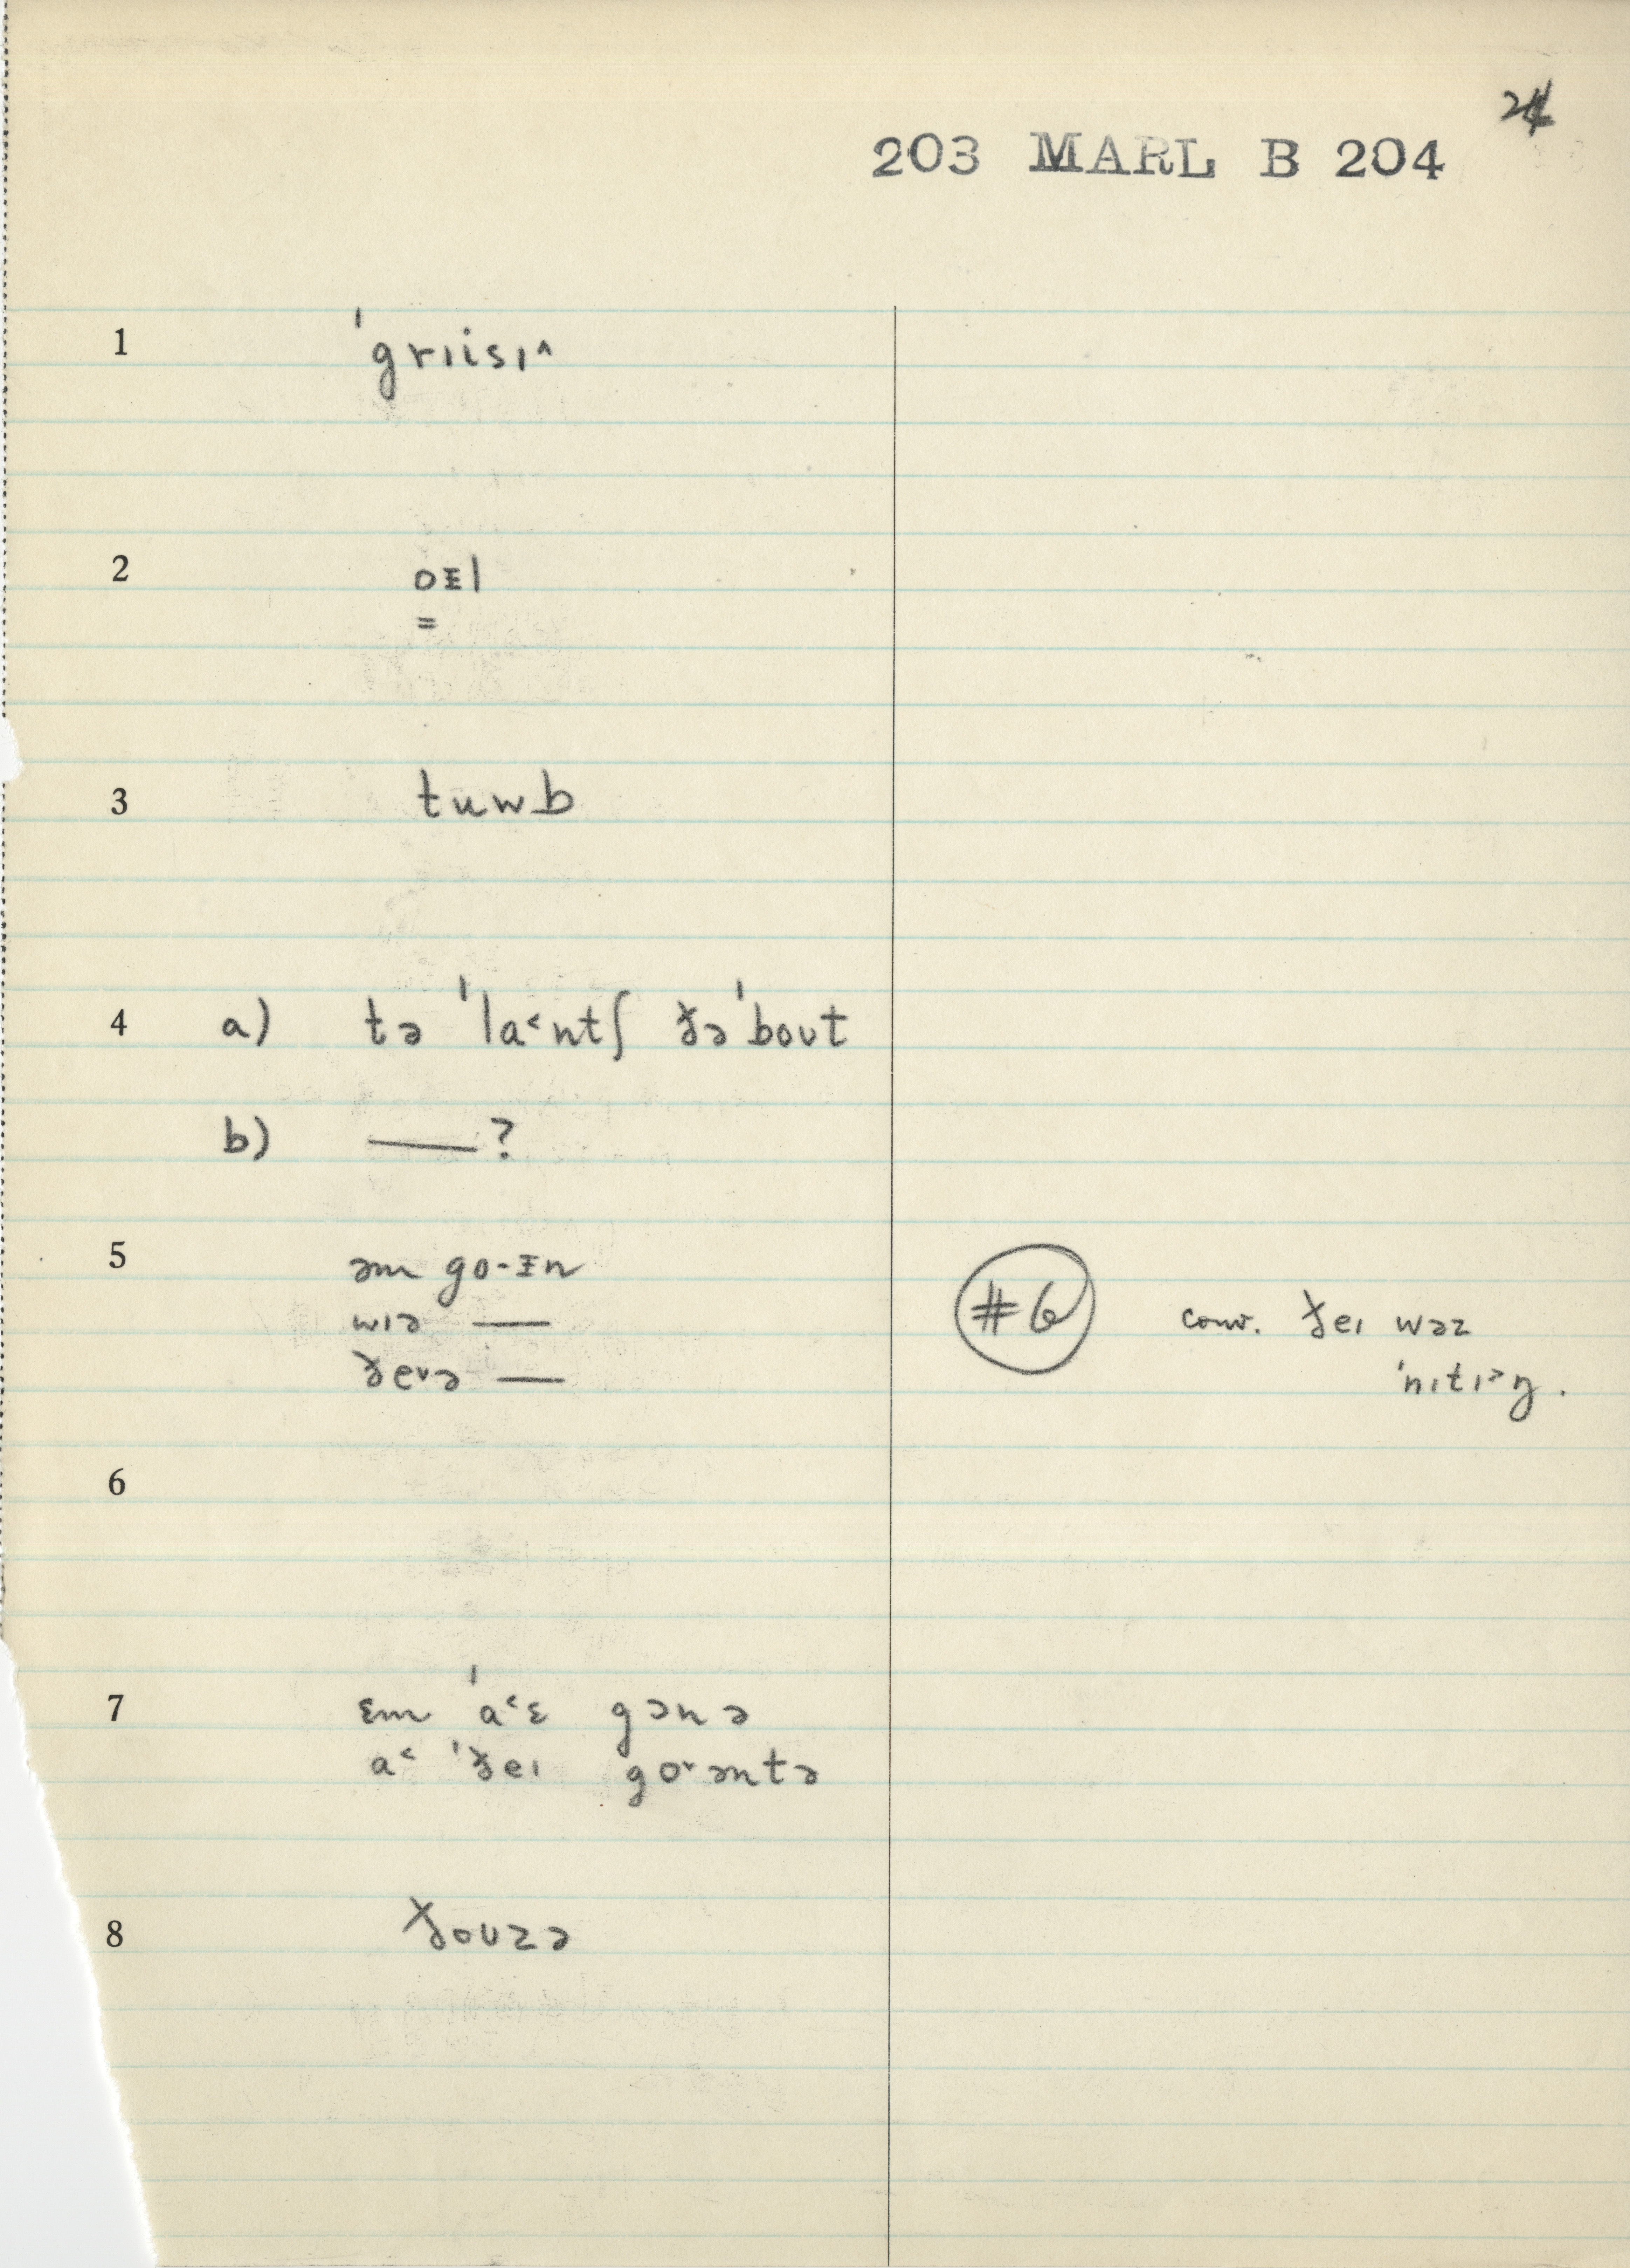 24
203 MARL B 204
1 ˈgrɪisɪ^
2 oᵻl
=
3 tuwb
4 a) tə ˈla˂ntʃ ðəˈbout
b) —— ?
5 əm go-ᵻn
wɪə ——
ðe˅ə ——
#6 conv. ðeɪ wəz
ˈnɪtɪ˃ŋ.
6
7 ɛm ˈa˂ɛ gənə
a˂ ˈðeɪ go˅əntə
8 ðouzə